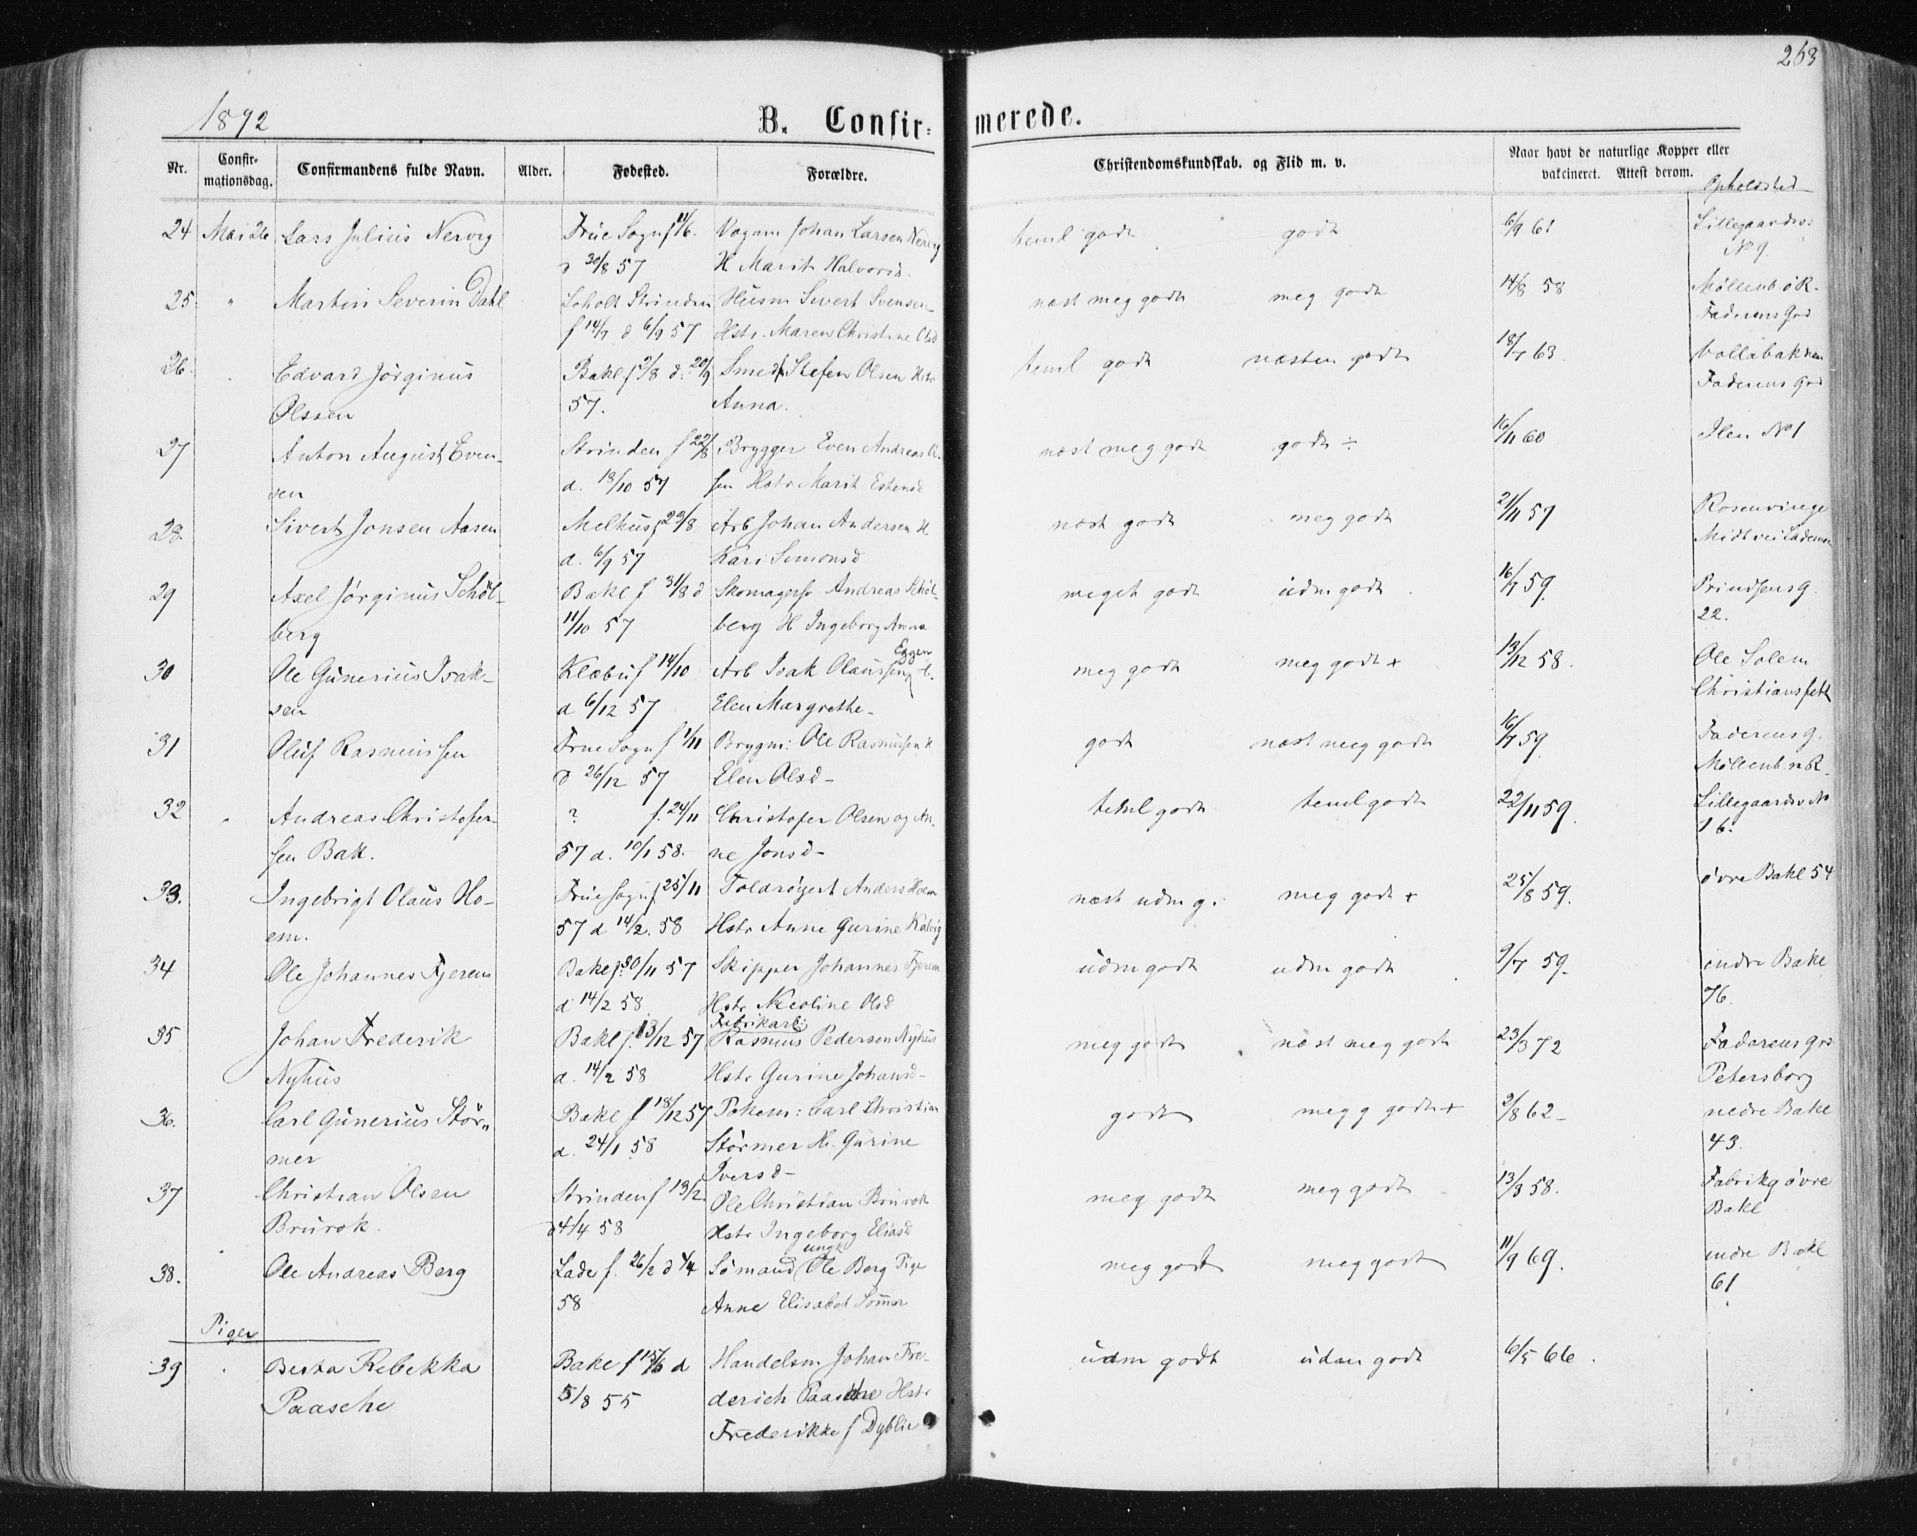 263
1872
B. Confir-
merede.
Nr.
Confir-
mationsdag.
Confirmandens fulde Navn.
Alder.
Fødested.
Forældre.
Christendomskundskab. og Flid m. v.
Naar havt de naturlige Kopper eller
vakcineret. Attest derom.
Opholdsted
24 Mai 26 Lars Julius Nervig Frue Sogn f 11/6. Vognm Johan Larsen Nervig teml godt godt 6/9 61 Lillegaardsv:
d 30/8 57 H Marit Halvorsd. No 9.
25 " Martin Severin Dahl Loholt Strinden Husm Sivert Svensen næst meg godt meg godt 14/8 58 Møllenb ø R.
f 14/7 d 6/9 57 Hstr. Maren Christine Olsd Faderens Grd
26. " Edvard Jørginus Bakl f 2/8 d. 20/9 Smed Stefen Olsen Hstr teml godt næsten godt 18/7 63. Vollabakken
Olssen 57. Anna. Faderens Grd
27 Anton August Even- Strinden f 22/8 Brygger Even Andreas næst meg godt godt ÷ 16/11 60 Ilen No 1
sen d. 18/10 57 sen Hstr Marit Estensd
28. Sivert Jonsen Aasen Melhus f 22/8 Arb Johan Andersen H næst godt meg godt 21/11 57 Rosenvinge
d. 6/9 57 Kari Simonsd Midtvei Lademoen
29 Axel Jørginus Schøl- Bakl f 31/8 d Skomagersv Andreas Schøl- meget godt udm godt 16/7 59. Prindsens g.
berg 11/10 57 berg H Ingeborg Anna 22.
30 Ole Gunerius Isak- Klæbu f 14/10 Arb Isak Olaussen Eggen meg godt meg godt + 13/12 58. Ole Solem
sen d 6/12 57 Elen Margrethe- Christiansfeld
31 Oluf Rasmussen Frue Sogn f 1/11 Brygm: Ole Rasmussen H godt næst meg godt 16/7 59. Faderens g.
d 26/12 57 Elen Olsd- Møllenb ø R.
32 " Andreas Christofer- ? f. 24/11 Christofer Olsen og An- teml godt teml godt 22/11 59. Lillegaardsv No
sen Bak. 57 d. 10/1 58. ne Jonsd- 16.
33. Ingebrigt Olaus Ho- Frue Sogn f 25/11 Toldrøgert Anders Hoem næst udm g. meg godt + 25/8 59. øvre Bakl 54
em. 57 d 14/2. 58 Hstr Anne Gurine Kalvig
34 Ole Johannes Fjerem Bakl f. 30/11 57 Skipper Johannes Fjerem udm godt udm godt 9/7 59. indre Bakl
d 14/2 58 Hstr Nicoline Olsd 76.
35 Johan Frederik Bakl f. 13/12 57 Fabrikarb: Rasmus Pedersen Nyhus meg godt næst meg godt 23/3 72 Faderens grd
Nyhus d. 14/2 58 Hstr Gurine Johansd- Petersborg
36. Carl Gunerius Stør- Bakl f 18/12 57 Pakm: Carl Christian godt megg godt + 2/8 62- nedre Bakl
mer d. 24/1 58 Størmer H. Gurine 43.
Iversd-
37 Christian Olsen Strinden f 13/2 Ole Christian Brurok meg godt meg godt 13/3 58. Fabrikg øvre
Brurok. d 4/4 58 Hstr Ingeborg Eliasd Bakl
38. Ole Andreas Berg Lade f. 26/2 d 4/4 Sømand ungk Ole Berg Pige meg godt meg godt 11/9 69. indre Bakl
58 Anne Elisabet Somer 61
Piger
39 " Berta Rebekka Bakl f 15/6 d Handelsm Johan Fre- udm godt udm godt 6/5 66.
Paasche 5/8 55 derich Paasche Hstr
Frederikke f Dyblie